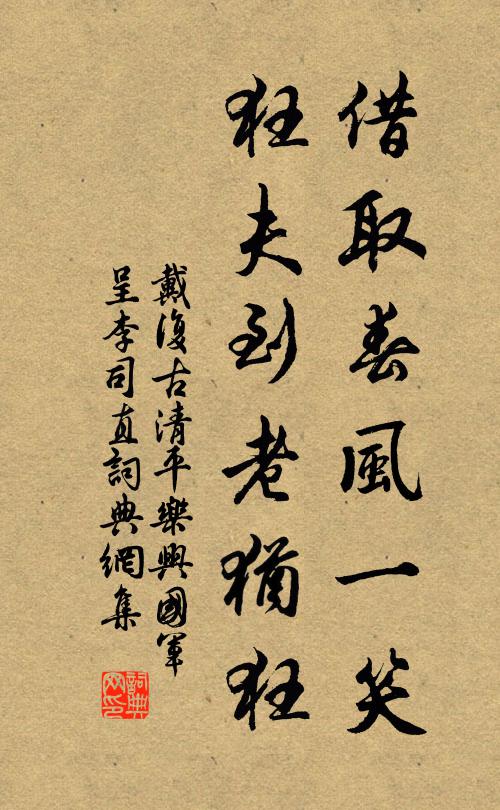 借取春風一笑
狂夫到老猶狂
戴復古清平樂興國軍
呈李司直詞典網集
詞典網印